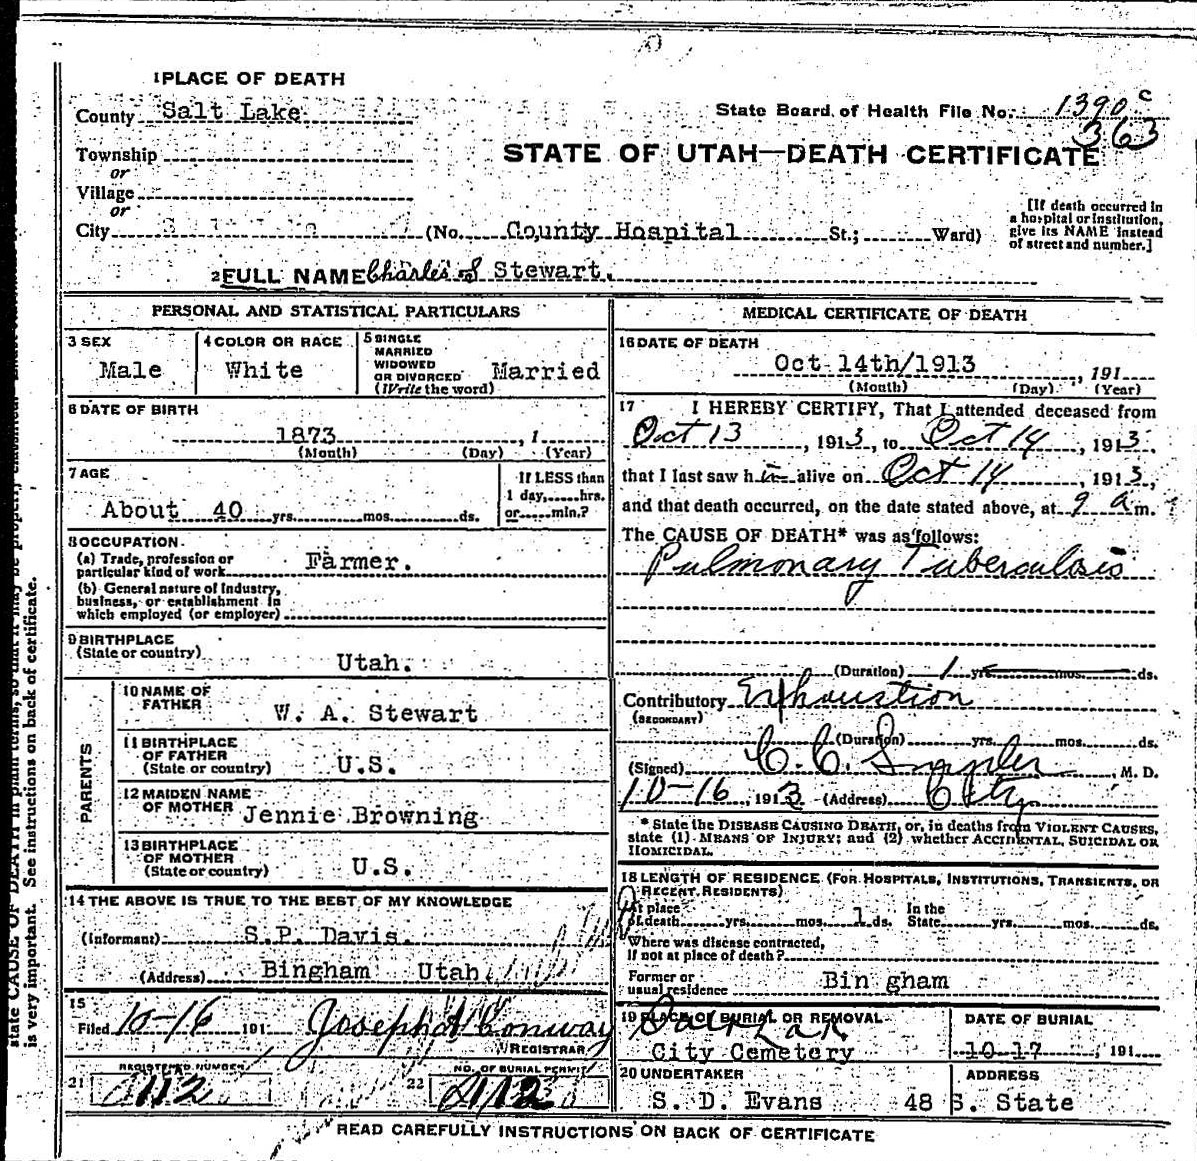 1 PLACE OF DEATH
County Salt Lake
State Board of Health File No. 1390 c
363
Township
or
Village
or
City
STATE OF UTAH—DEATH CERTIFICATE
(No. County Hospital St.; Ward)
[If death occurred in
a hospital or institution,
give its NAME instead
of street and number.]
2 FULL NAME Charles S Stewart.
PERSONAL AND STATISTICAL PARTICULARS
3 SEX
Male
4 COLOR OR RACE
White
5 SINGLE
MARRIED
WIDOWED
OR DIVORCED
(Write the word)
Married
6 DATE OF BIRTH
1873, 1
(Month) (Day) (Year)
7 AGE
About 40 yrs. mos. ds.
If LESS than
1 day, hrs.
or min.?
8 OCCUPATION.
(a) Trade, profession or
particular kind of work
Farmer.
(b) General nature of Industry,
business, or establishment in
which employed (or employer)
9 BIRTHPLACE
(State or country)
Utah.
PARENTS
10 NAME OF
FATHER
W. A. Stewart
11 BIRTHPLACE
OF FATHER
(State or country)
U.S.
12 MAIDEN NAME
OF MOTHER
Jennie Browning
13 BIRTHPLACE
OF MOTHER
(State or country)
U.S.
14 THE ABOVE IS TRUE TO THE BEST OF MY KNOWLEDGE
(Informant) S.P. Davis.
(Address) Bingham Utah
15
Filed 10-16 191 Joseph H Conway
REGISTRAR
REGISTERED NUMBER
21
NO. OF BURIAL PERMIT
22
MEDICAL CERTIFICATE OF DEATH
16 DATE OF DEATH
Oct 14th/1913, 191
(Month) (Day) (Year)
17 I HEREBY CERTIFY, That I attended deceased from
Oct 13, 1913, to Oct 14, 1913.
that I last saw him alive on Oct 14, 1913,
and that death occurred, on the date stated above, at 9 a m.
The CAUSE OF DEATH* was as follows:
Pulmonary Tuberculosis
(Duration) 1 yrs. mos. ds.
Contributory Exhaustion
(SECONDARY)
(Duration) yrs. mos. ds.
(Signed) C. C. Snyder, M. D.
10-16, 1913 (Address) City
* State the DISEASE CAUSING DEATH, or, in deaths from VIOLENT CAUSES,
state (1) MEANS OF INJURY; and (2) whether ACCIDENTAL, SUICIDAL OR
HOMICIDAL.
18 LENGTH OF RESIDENCE (FOR HOSPITALS, INSTITUTIONS, TRANSIENTS, OR
RECENT RESIDENTS)
At place
of death yrs. mos. 1 ds.
In the
State yrs. mos. ds.
Where was disease contracted,
If not at place of death?
Former or
usual residence
Bin gham
19 PLACE OF BURIAL OR REMOVAL
Salt Lak
City Cemetery
DATE OF BURIAL
10-17, 191
20 UNDERTAKER
S. D. Evans
ADDRESS
48 S. State
READ CAREFULLY INSTRUCTIONS ON BACK OF CERTIFICATE
state CAUSE OF DEATH in plain terms, so that it may be properly
is very important. See instructions on back of certificate.